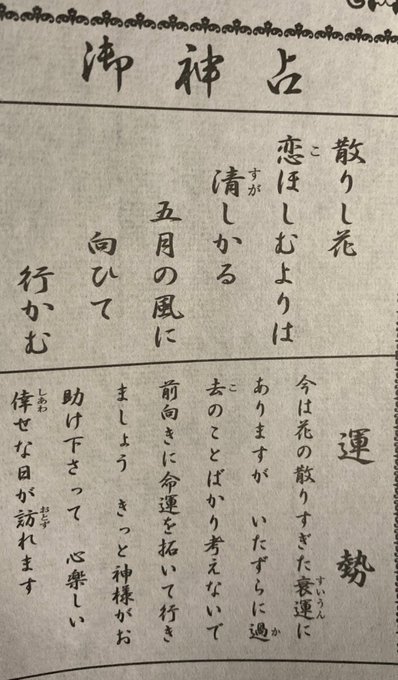 御神占
散りし花
恋ほしむよりは
清しかる
五月の風に
向ひて
行かむ
運勢
今は花の散りすぎた衰運に
ありますが いたずらに過
去のことばかり考えないで
前向きに命運を拓いて行き
ましょう きっと神様がお
助け下さって 心楽しい
倖せな日が訪れます